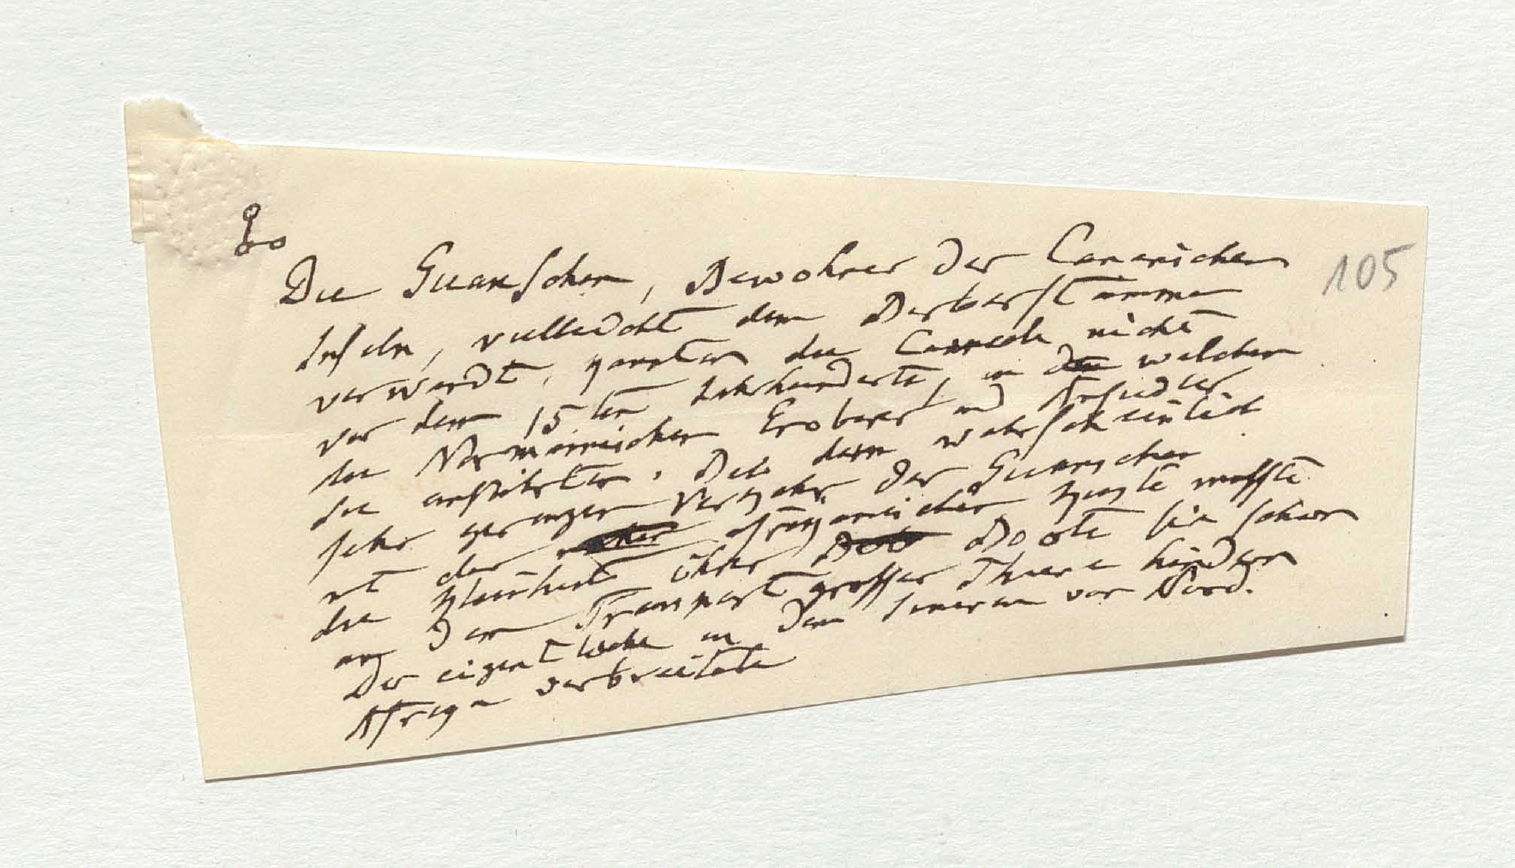 105
Die Guanschen, Bewohner der Canarischen
Inseln, vielleicht dem Berberstamme
verwandt, kannten die Cameele nicht
vor dem 15ten Jahrhunderte, in welchem
die Normännischen Eroberer und Ansiedler
sie einführten. Bei dem wahrscheinlich
sehr geringen Verkehr der Guanschen
mit der afrikanischen Küste musste
die Kleinheit ihrer Boote sie schon
am Transport grosser Thiere hindern
Der eigentliche in dem Inneren von Nord.
Afrika verbreitete